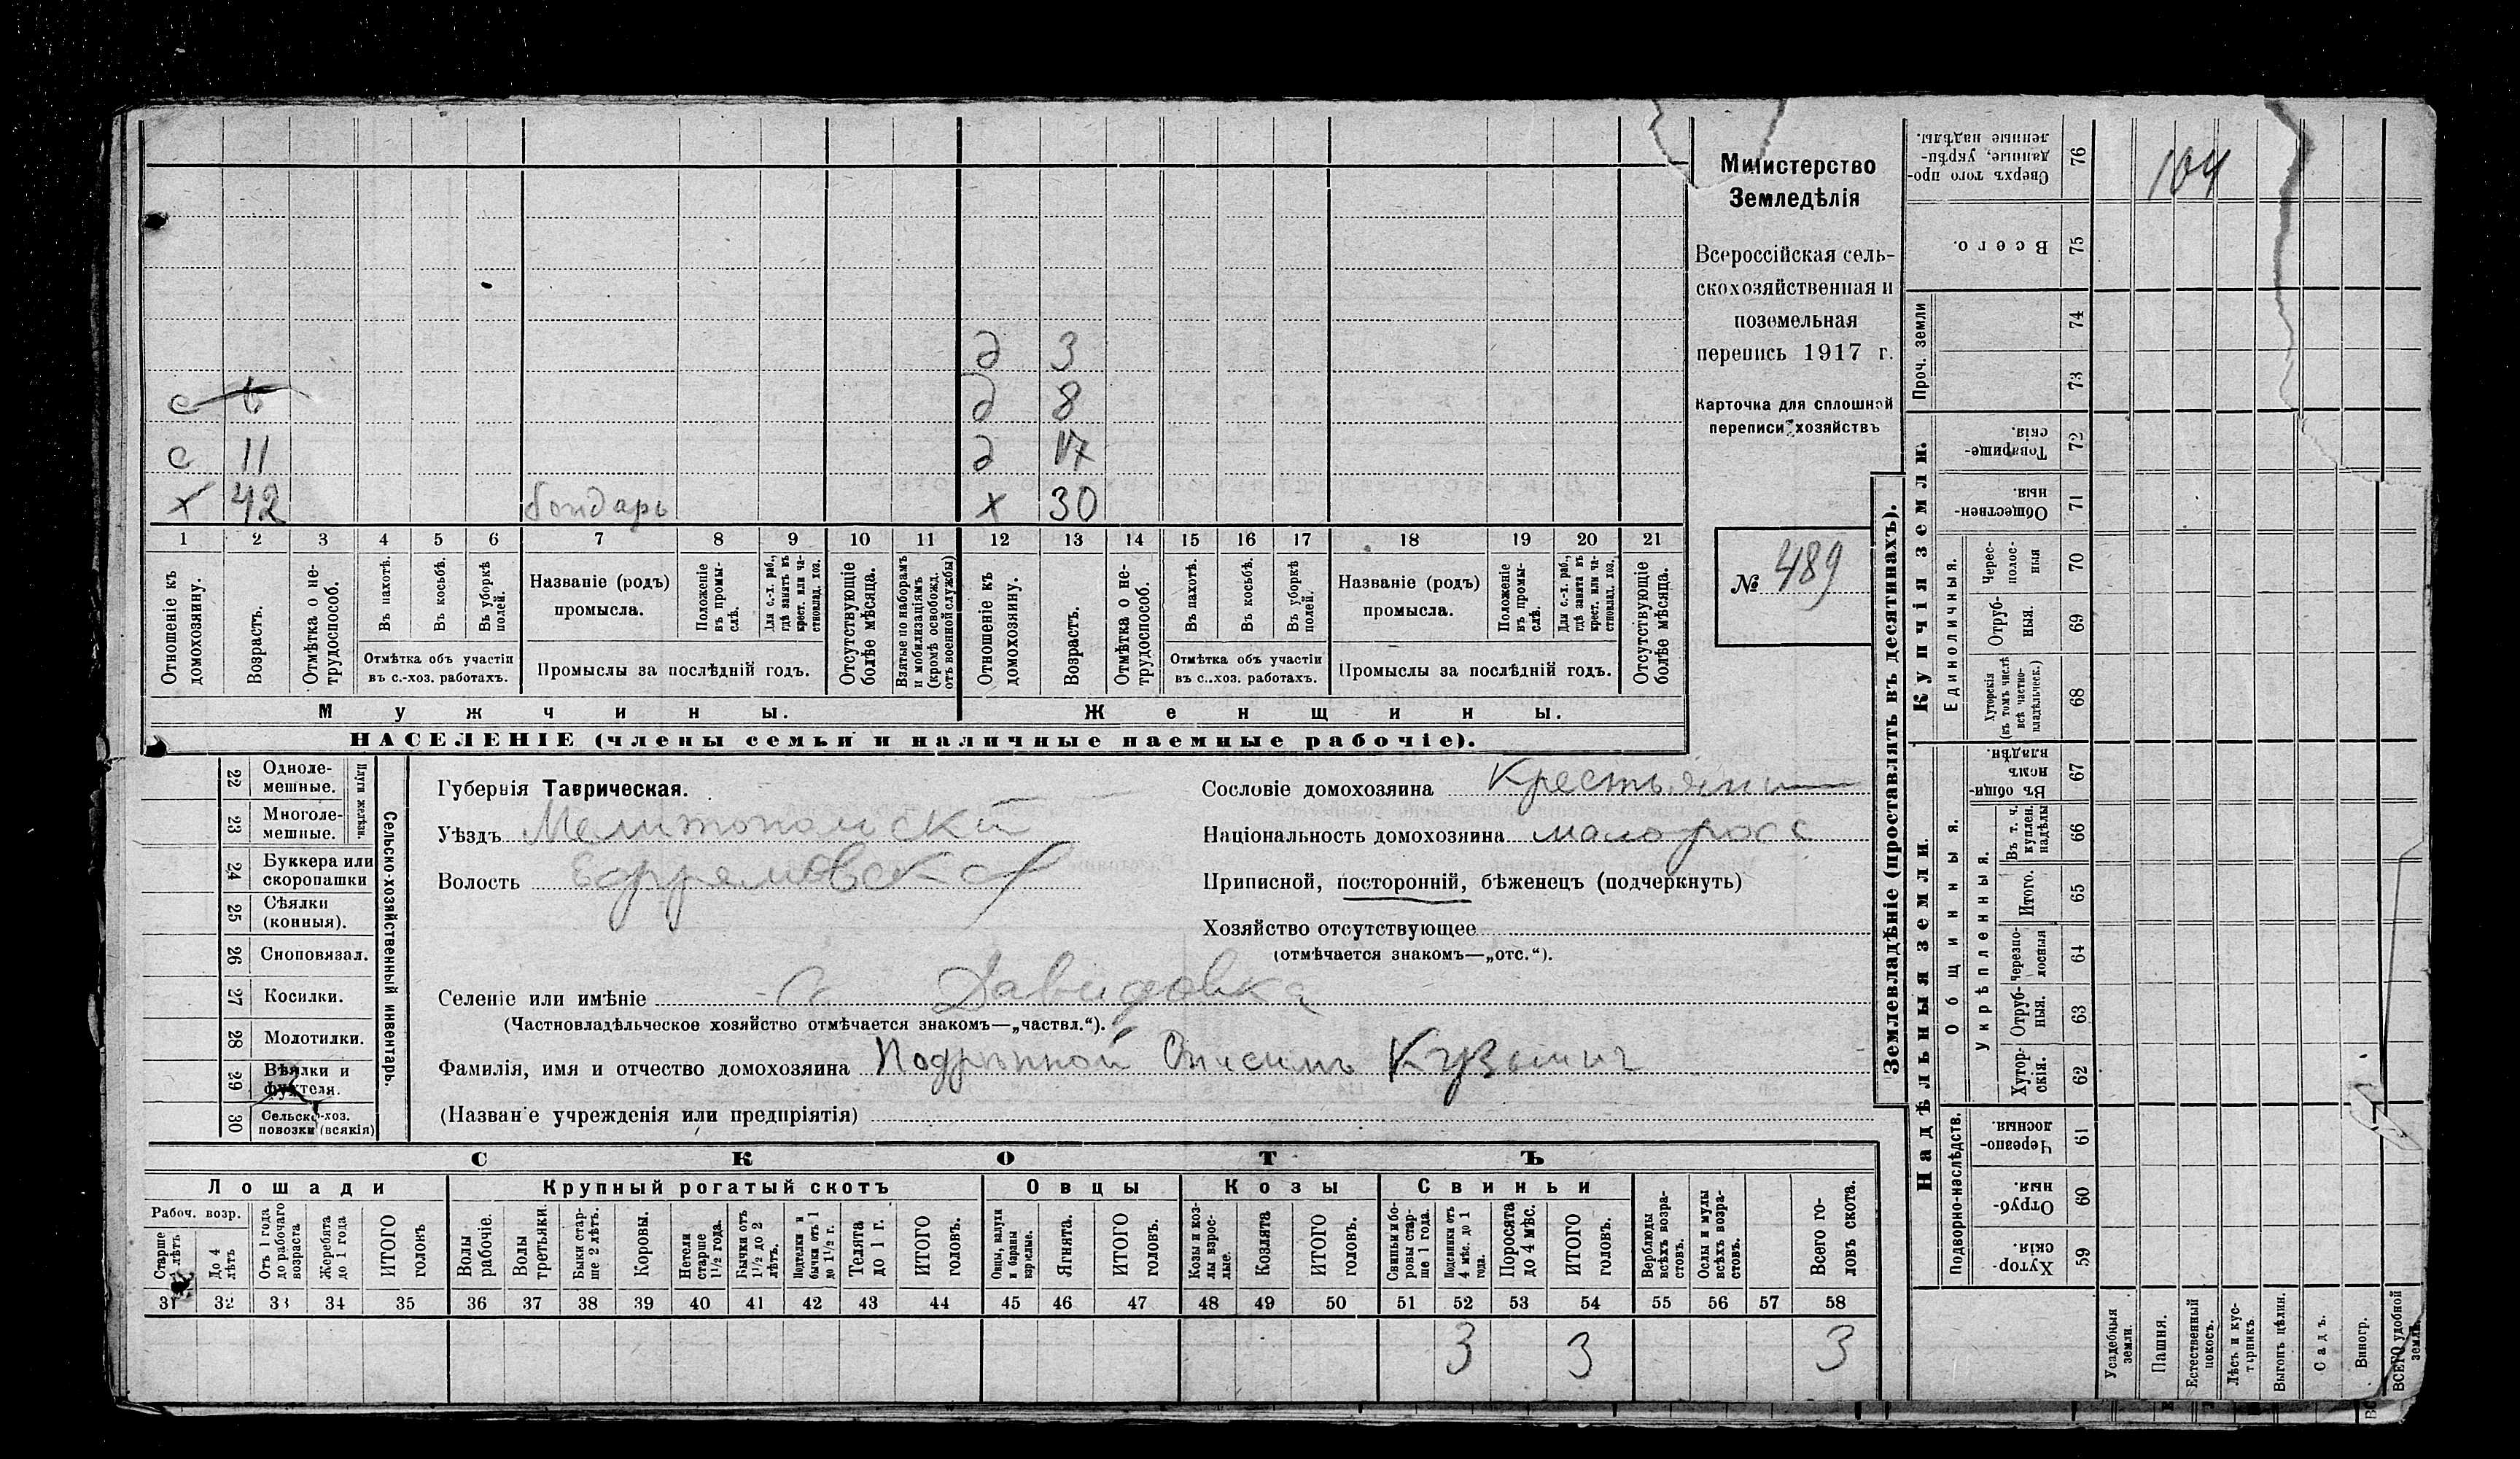 д 3
с 6 д 8
с 11 д 17
х 42 бондарь х 30
1 2 3 4 5 6 7 8 9 10 11 12 13 14 15 16 17 18 19 20 21
Отношеніе къ домохозяину.
Возрастъ.
Отмѣтка о не-трудоспособ.
Въ пахотѣ.
Въ косьбѣ.
Въ уборкѣ полей.
Отмѣтка объ участіи
въ с.-хоз. работахъ.
Названіе (родъ)
промысла.
Положеніе въ промы-слѣ.
Для с.-х. раб., гдѣ занятъ въ крест. или ча-стновлад. хоз.
Промыслы за послѣдній годъ.
Отсутствующіе болѣе мѣсяца.
Взятые по наборамъ и мобилизаціямъ (кромѣ освобожд. отъ военной службы)
Отношеніе къ домохозяину.
Возрастъ.
Отмѣтка о не-трудоспособ.
Въ пахотѣ.
Въ косьбѣ.
Въ уборкѣ полей.
Отмѣтка объ участіи
въ с.-хоз. работахъ.
Названіе (родъ)
промысла.
Положеніе въ промы-слѣ.
Для с.-х. раб., гдѣ занята въ крест. или ча-стновлад. хоз.
Промыслы за послѣдній годъ.
Отсутствующіе болѣе мѣсяца.
Мужчины. Женщины.
НАСЕЛЕНІЕ (члены семьи и наличные наемные рабочіе).
Министерство
Земледѣлія
Всероссійская сель-
скохозяйственная и
поземельная
перепись 1917 г.
Карточка для сплошной
переписи хозяйствъ
№ 489
22 Одноле-мешные.
23 Многоле-мешные.
Плуги желѣзн.
24 Буккера или скоропашки
25 Сѣялки (конныя).
26 Сноповязал.
27 Косилки.
28 Молотилки.
29 Вѣялки и фухтеля.
30 Сельско-хоз. повозки (всякія)
Сельско-хозяйственный инвентарь.
Губернія Таврическая.
Уѣздъ Мелитопольскій
Волость Ефремовская
Сословіе домохозяина Крестьянин
Національность домохозяина малоросс
Приписной, посторонній, бѣженецъ (подчеркнуть)
Хозяйство отсутствующее
(отмѣчается знакомъ—„отс.“).
Селеніе или имѣніе с. Давидовка
(Частновладѣльческое хозяйство отмѣчается знакомъ—„частвл.“).
Фамилія, имя и отчество домохозяина Онисимъ Кузьмич
(Названіе учрежденія или предпріятія)
СКОТЪ
Лошади Крупный рогатый скотъ Овцы Козы Свиньи
Рабоч. возр.
Старше лѣтъ
До 4 лѣтъ
Отъ 1 года до рабочаго возраста
Жеребята до 1 года
ИТОГО головъ
Волы рабочіе.
Волы третьяки.
Быки стар-ше 2 лѣтъ.
Коровы.
Нетели старше 1½ года.
Бычки отъ 1½ до 2 лѣтъ.
Подтелки и бычки отъ 1 до 1½ г.
Телята до 1 г.
ИТОГО головъ.
Овцы, валухи и бараны взрослые.
Ягнята.
ИТОГО головъ.
Козы и коз-лы взрос-лые.
Козлята
ИТОГО головъ.
Свиньи и бо-ровы стар-ше 1 года.
Подсвинки отъ 4 мѣс. до 1 года.
Поросята до 4 мѣс.
ИТОГО головъ.
Верблюды всѣхъ возра-стовъ.
Ослы и мулы всѣхъ возра-стовъ.
Всего го-ловъ скота.
31 32 33 34 35 36 37 38 39 40 41 42 43 44 45 46 47 48 49 50 51 52 53 54 55 56 57 58
3 3 3
Землевладѣніе (проставлять въ десятинахъ).
Купчія земли.
Надѣльныя земли.
Сверхъ того про-данные, укрѣп-ленные надѣлы. 76
104
Всего. 75
Проч. земли
74
73
Товарище-скія. 72
Обществен-ныя. 71
Единоличныя.
Черес-полос-ныя 70
Отруб-ныя. 69
Хуторскія (въ томъ числѣ всѣ частно-владѣльческ.) 68
Общинныя.
Въ общи-номъ владѣн. 67
Укрѣпленныя.
Въ т. ч. куплен. надѣлы 66
Итого. 65
Черезпо-лосныя 64
Отруб-ныя. 63
Хутор-скія. 62
Подворно-наслѣдств.
Черезпо-лосныя. 61
Отруб-ныя. 60
Хутор-скія. 59
Усадебныя земли.
Пашня.
Естественный покосъ.
Лѣсъ и кус-тарникъ.
Выгонъ цѣлин.
Садъ.
Виногр.
ВСЕГО удобной земли.